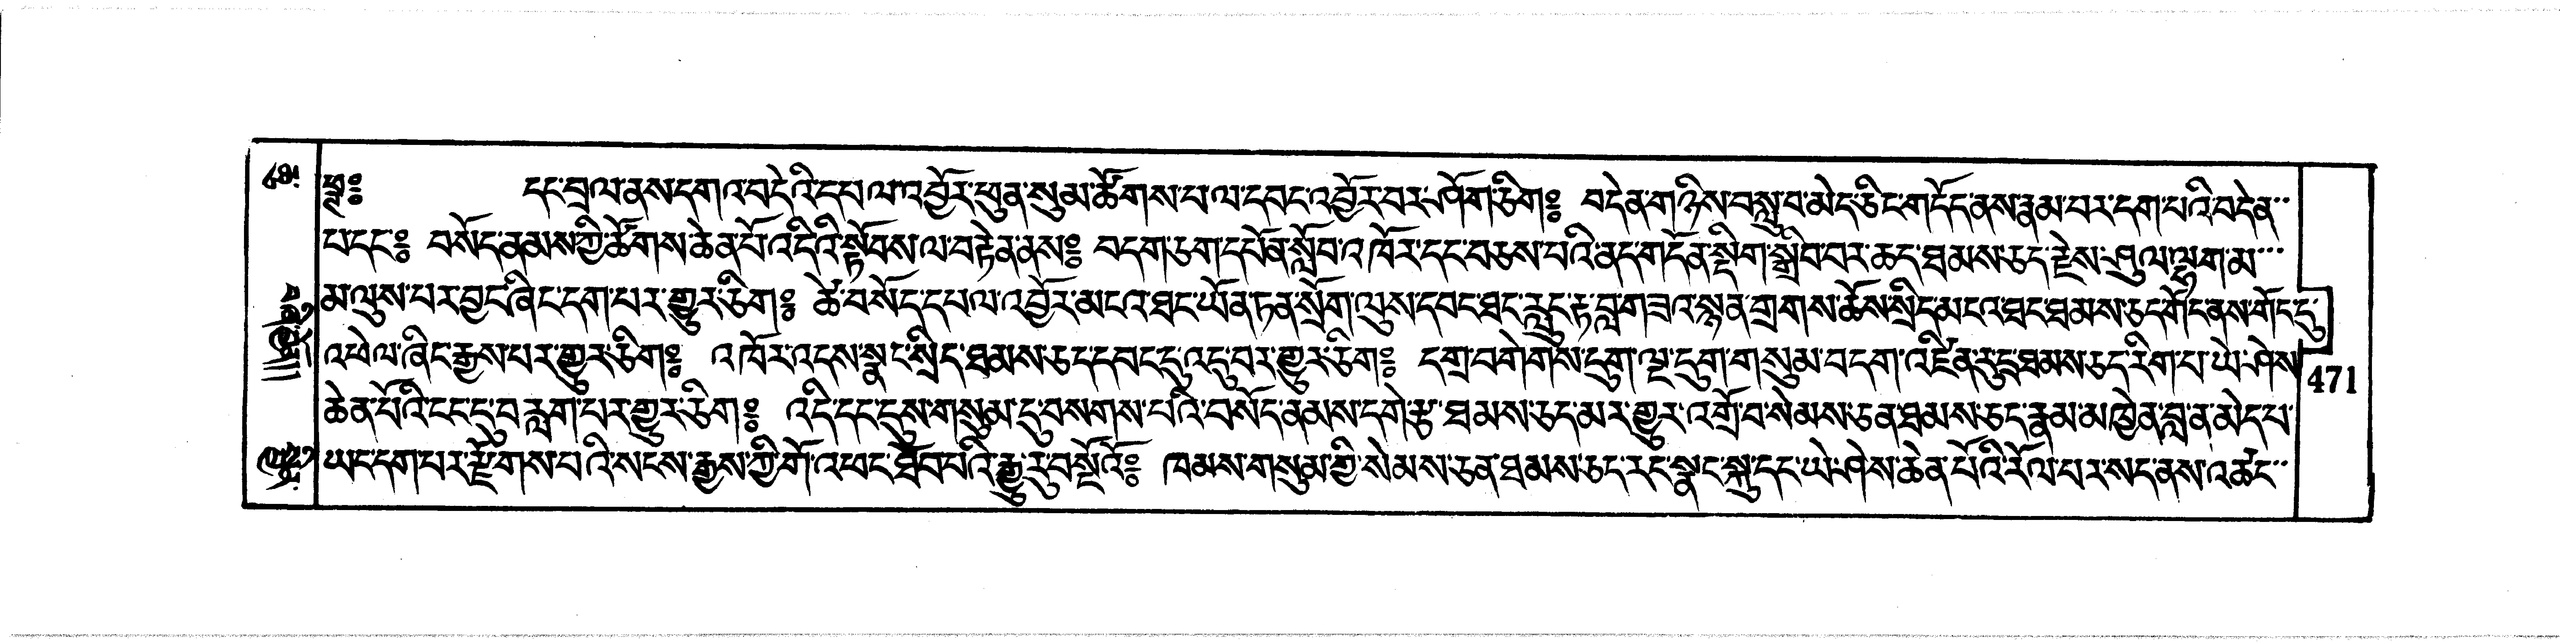 དང་བྲལ་ནས་དགའ་བདེའི་དཔལ་འབྱོར་ཕུན་སུམ་ཚོགས་པ་ལ་དབང་འབྱོར་བར་ཤོག་ཅིག༔ བདེན་གཉིས་བསླུ་བ་མེད་ཅིང་གདོད་ནས་རྣམ་པར་དག་པའི་བདེན་
པ་དང༔ བསོད་ནམས་ཀྱི་ཚོགས་ཆེན་པོ་འདིའི་སྟོབས་ལ་བརྟེན་ནས༔ བདག་ཅག་དཔོན་སློབ་འཁོར་དང་བཅས་པའི་ནད་གདོན་སྡིག་སྒྲིབ་བར་ཆད་ཐམས་ཅད་རྗེས་ཤུལ་ལྷག་མ་
མ་ལུས་པར་བྱང་ཞིང་དག་པར་གྱུར་ཅིག༔ ཚེ་བསོད་དཔལ་འབྱོར་མངའ་ཐང་ཡོན་ཏན་སྲོག་ལུས་དབང་ཐང་རླུང་རྟ་བླ་གཟའ་སྙན་གྲགས་ཆོས་སྲིད་མངའ་ཐང་ཐམས་ཅད་གོང་ནས་གོང་དུ་
འཕེལ་ཞིང་རྒྱས་པར་གྱུར་ཅིག༔ འཁོར་འདས་སྣང་སྲིད་ཐམས་ཅད་དབང་དུ་འདུ་བར་གྱུར་ཅིག༔ དགྲ་བགེགས་དུག་ལྔ་དུག་གསུམ་བདག་འཛིན་རུདྲ་ཐམས་ཅད་རིག་པ་ཡེ་ཤེས་
ཆེན་པོའི་ངང་དུ་བརླག་པར་གྱུར་ཅིག༔ འདི་དང་དུས་གསུམ་དུ་བསགས་པའི་བསོད་ནམས་དགེ་རྩ་ཐམས་ཅད་མར་གྱུར་འགྲོ་བ་སེམས་ཅན་ཐམས་ཅད་རྣམ་མཁྱེན་བླ་ན་མེད་པ་
ཡང་དག་པར་རྫོགས་པའི་སངས་རྒྱས་ཀྱི་གོ་འཕང་ཐོབ་པའི་རྒྱུ་རུ་བསྔོའོ༔ ཁམས་གསུམ་གྱི་སེམས་ཅན་ཐམས་ཅད་རང་སྣང་སྐུ་དང་ཡེ་ཤེས་ཆེན་པོའི་རོལ་པར་སད་ནས་འཚང་
471